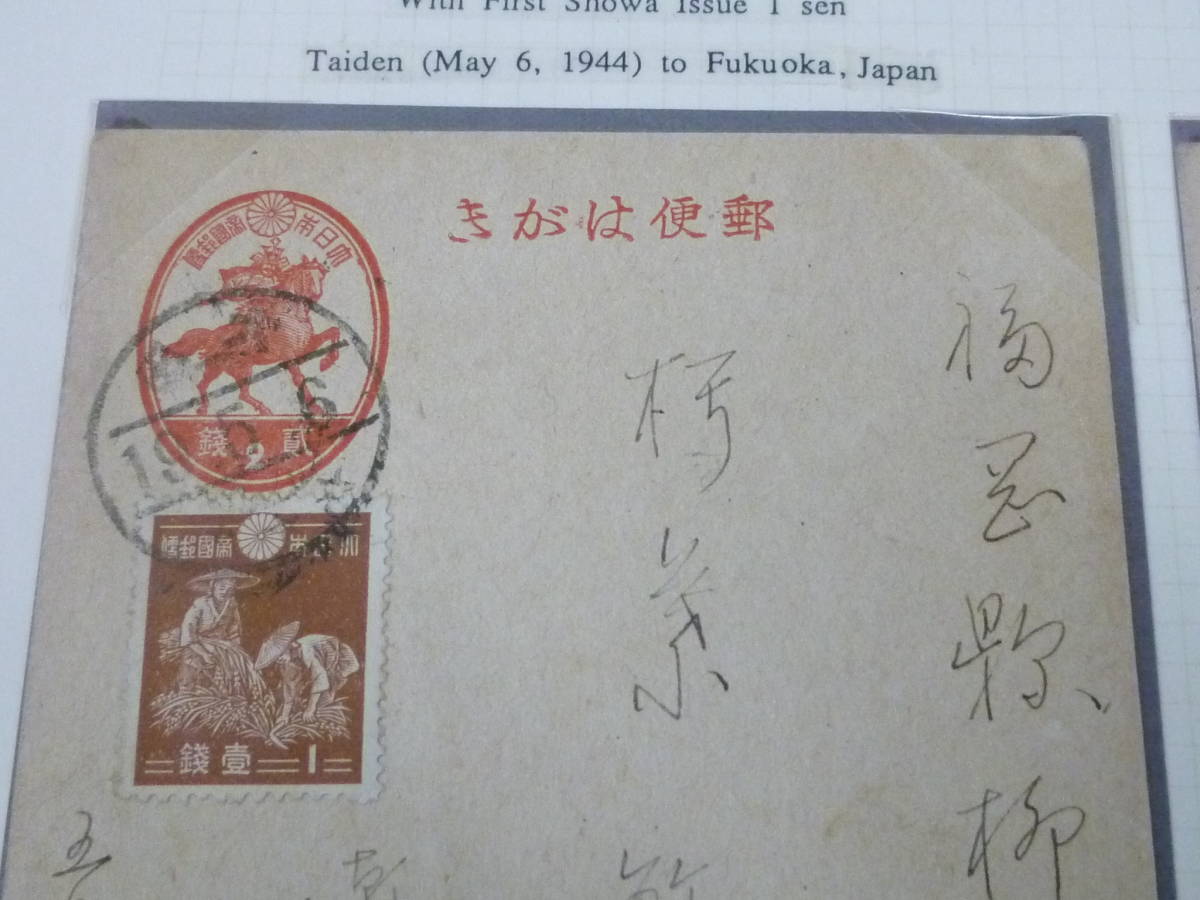 With First Showa Issue 1 sen
Taiden (May 6, 1944) to Fukuoka, Japan
郵便はがき
大日本帝國郵便
貳錢
2
19 5 6
大日本帝國郵便
壹錢
1
福岡縣柳